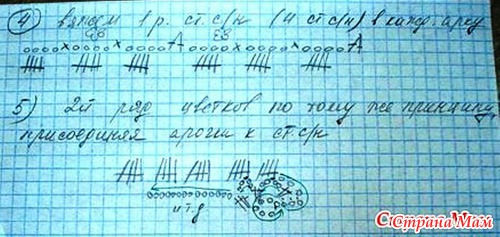 ④ вяжем 1 р. ст. с/н (4 ст с/н) в кажд. арку
5) 2й ряд цветков по тому же принципу,
присоединяя арочки к ст с/н
и т д
Страна Мам